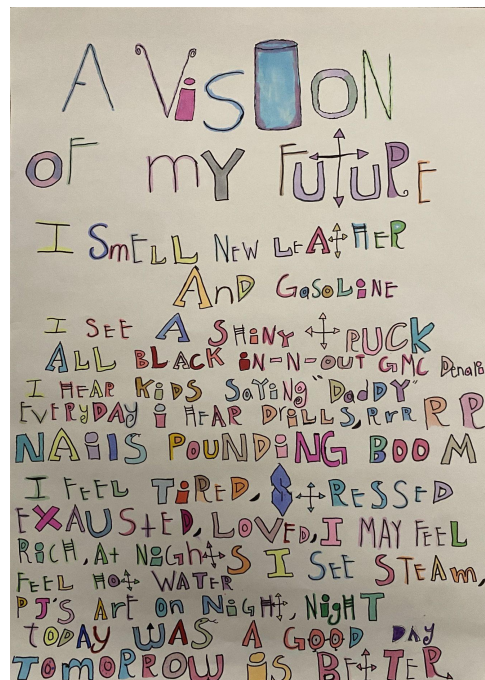 A ViSiON
OF mY FUtURE
I SmELL NEW LEAtHER
AnD GaSoLiNE
I SEE A SHiNY tRUCK
ALL BLACK iN-N-OUT GMC Denali
I HEAR KiDS SaYiNg "DaDDY"
EVERYDAY i HEAR DRiLLS, RrR R R
NAiLS POUNDiNG BOOM
I FEEL TiRED, StRESSED
EXAUStED, LOVED, I MAY FEEL
RiCH, At NiGHtS I SEE STEAm,
FEEL HOt WATER
PJ'S ArE on NiGHt, NigHT
tODAY WAS A GOOD DAY
TOmORROW iS BEtTER